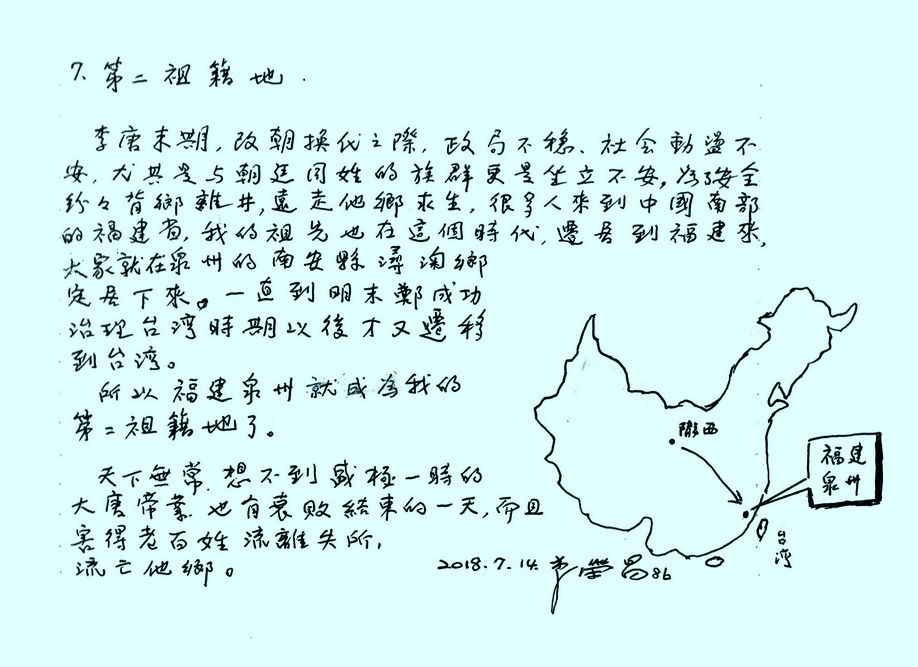 7、第二祖籍地.
李唐末期,改朝換代之際,政局不穩、社会動盪不
安,尤其是与朝廷同姓的族群更是坐立不安,为了安全
纷々背鄉離井,遠走他鄉求生,很多人來到中國南部
的福建省,我的祖先也在這個時代,遷居到福建來,
大家就在泉州的南安縣潯淘鄉
定居下來。一直到明末鄭成功
治理台湾時期以後才又遷移
到台湾。
所以福建泉州就成為我的
第二祖籍地了。
天下無常,想不到盛極一時的
大唐帝業,也有衰败結束的一天,而且
害得老百姓流離失所,
流亡他鄉。
2018.7.14. 榮昌86
隴西
福建
泉州
台湾